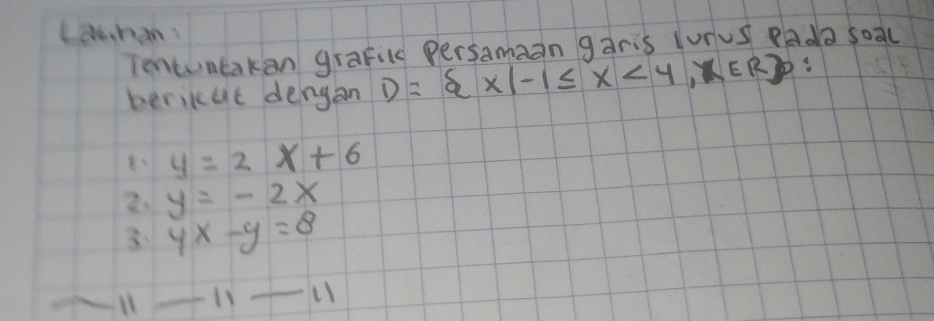 Latihan:
Tentuntakan grafik persamaan garis lurus pada soal
berikut dengan D = { x | -1 ≤ x < 4, x ∈ R }:
1. y = 2x + 6
2. y = - 2x
3. 4x - y = 8
— 11 — 11 — 11